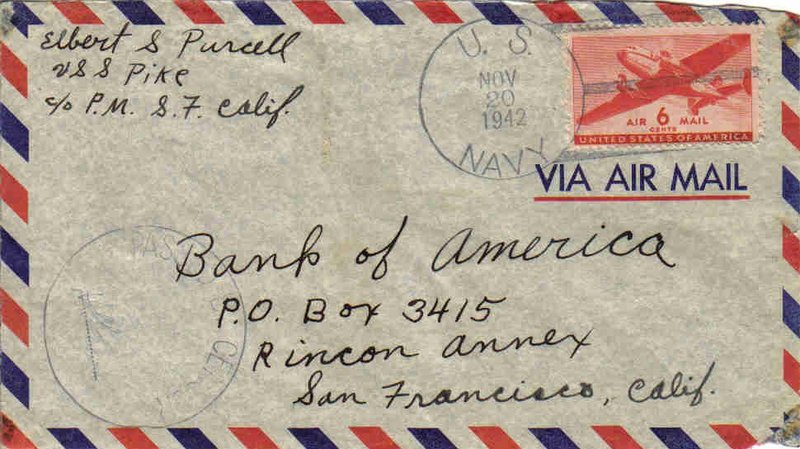 Elbert S Purcell
USS Pike
c/o P.M. S.F. Calif.
U. S.
NOV
20
1942
NAVY
AIR 6 MAIL
CENTS
UNITED STATES OF AMERICA
VIA AIR MAIL
PASSED
Bank of America
P.O. Box 3415
Rincon Annex
San Francisco, Calif.